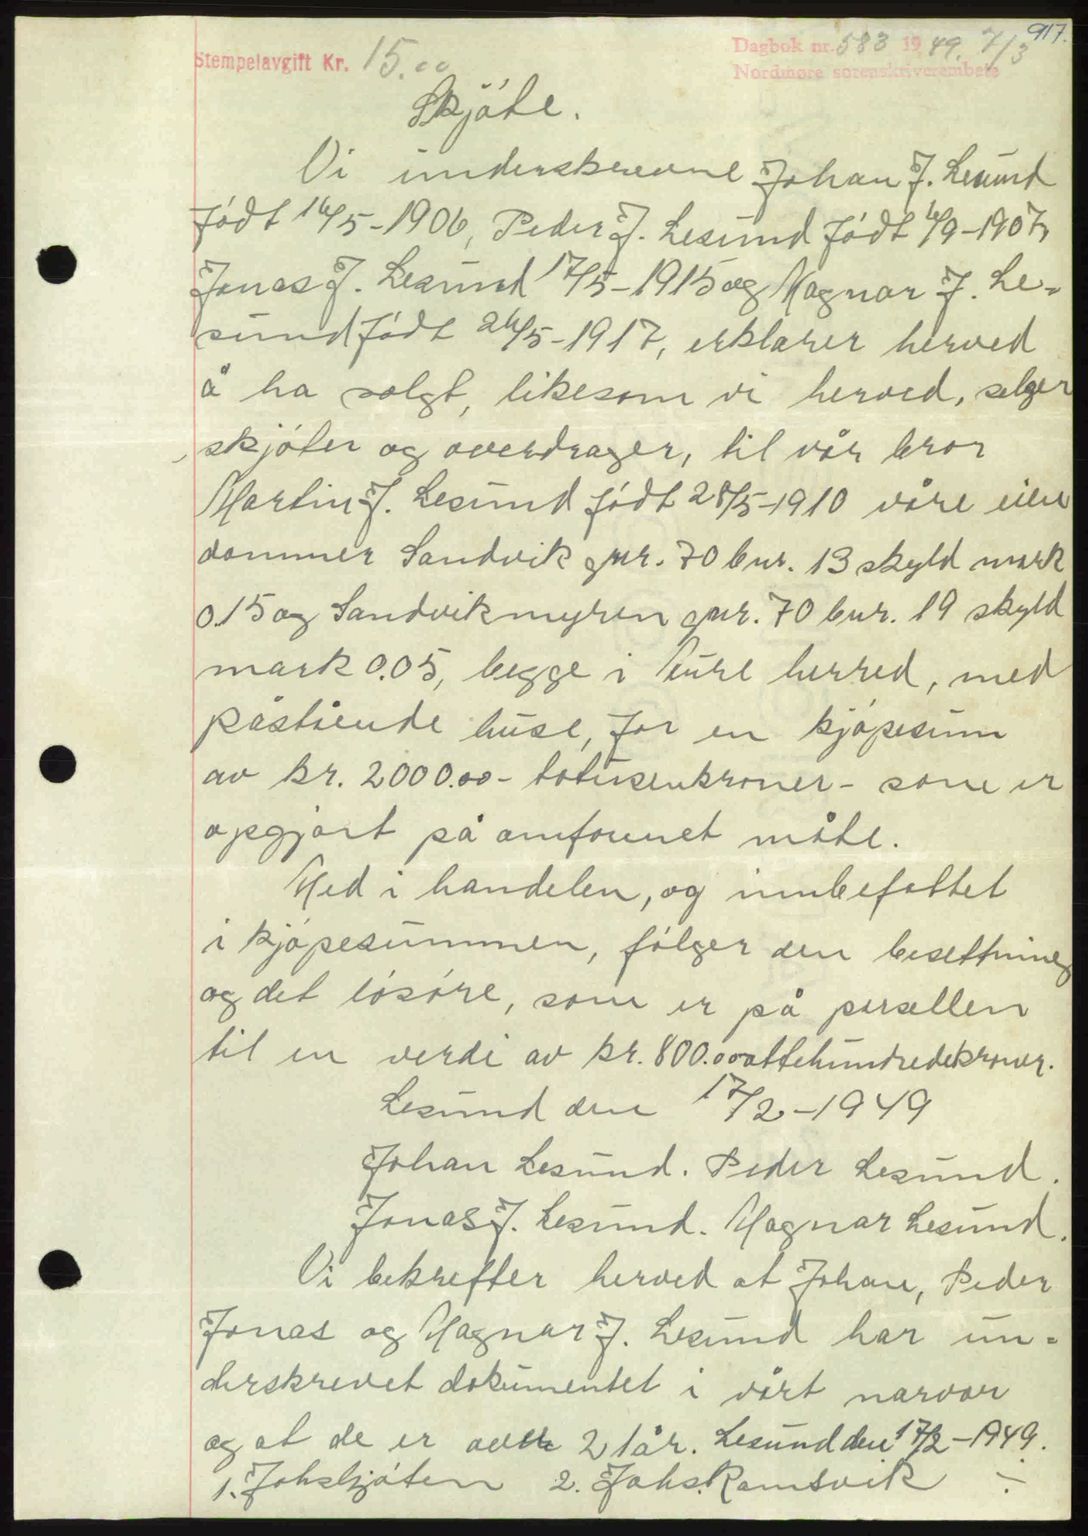 917.
Stempelavgift Kr. 15.00
Dagbok nr. 583 19 49. 7/3
Nordmøre sorenskriverembete
Skjøte.
Vi underskrevne Johan J. Lesund
født 16/5-1906, Peder J. Lesund født 4/9-1907,
Jonas J. Lesund 17/5-1915 og Magnar J. Le-
sund født 24/5-1917, erklærer herved
å ha solgt, likesom vi herved, selger
skjøter og overdrager, til vår bror
Martin J. Lesund født 28/5-1910 våre eien
dommer Sandvik gnr. 70 bnr. 13 skyld mark
0.15 og Sandvikmyren gnr. 70 bnr. 19 skyld
mark 0.05, begge i Aure herred, med
påstående huse, for en kjøpesum
av kr. 2000.00 - totusenkroner - som er
opgjort på omforenet måte.
Med i handelen, og innbefattet
i kjøpesummen, følger den besettning
og det løsøre, som er på parsellen
til en verdi av kr. 800.00 attehundredekroner.
Lesund den 17/2-1949
Johan Lesund. Peder Lesund.
Jonas J. Lesund. Magnar Lesund.
Vi bekrefter herved at Johan, Peder
Jonas og Magnar J. Lesund har un-
derskrevet dokumentet i vårt nærvær
og at de er over 21 år. Lesund den 17/2-1949.
1. Johs 2. Johs. Ramsvik